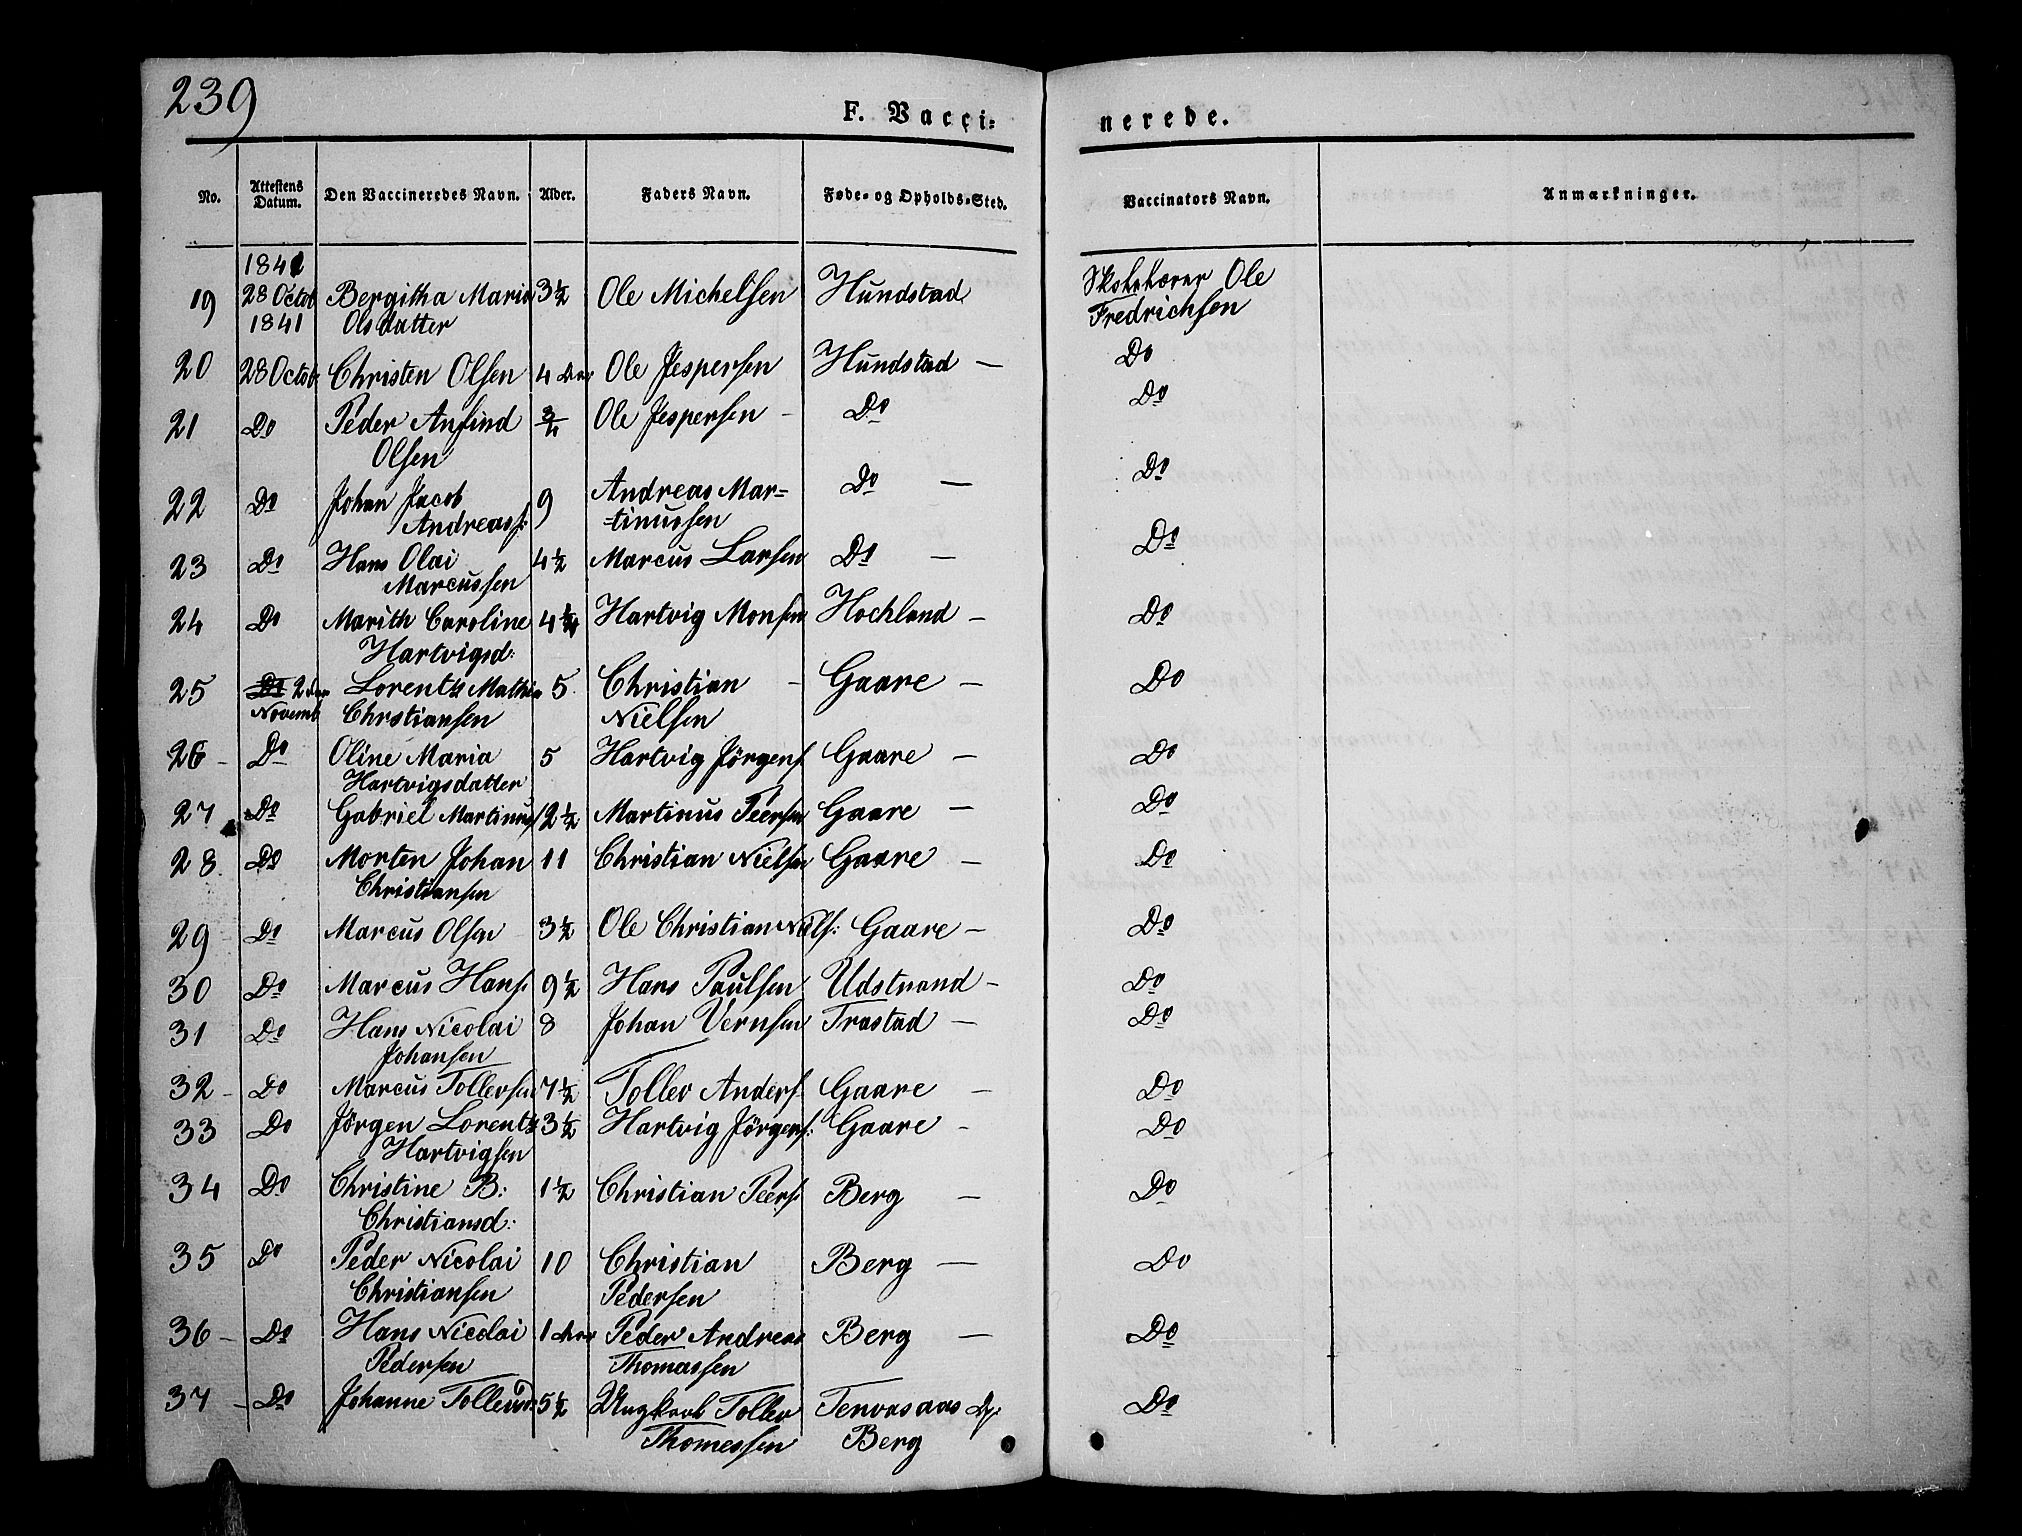 239
F. Vacci=
nerede.
No. Attestens Datum. Den Vaccineredes Navn. Alder. Faders Navn. Føde- og Opholds-Sted. Vaccinators Navn. Anmærkninger.
1841
19 28 Octob Bergitha Maria 3½ Ole Michelsen Hundstad Ole
1841 Olsdatter Fredrichsen
20 28 Octob. Christen Olsen 4 Ole Jespersen Hundstad — Do
21 Do Peder Anfind 3/4 Ole Jespersen – Do Do
Olsen
22 Do Johan Jacob 9 Andreas Mar= Do — Do
Andreass: tinussen
23 Do Hans Olai 4½ Marcus Larsen Do — Do
Marcussen
24 Do Marith Caroline 4¼ Hartvig Monsen Hochland — Do
Hartvigsd:
25 Do 2den Lorents Mathias 5 Christian – Gaare — Do
Novemb Christiansen Nielsen
26 – Do Oline Maria 5 Hartvig Jörgens. Gaare — Do
Hartvigsdatter
27 Do Gabriel Martinus 12½ Martinus Peersen Gaare — Do
28 Do Morten Johan 11 Christian Nielsen Gaare — Do
Christiansen
29 – Do Marcus Olsen 3½ Ole Christian Niels: Gaare — Do
30 Do Marcus Hans. 9½ Hans Paulsen Udstrand – Do
31 Do Hans Nicolai 8 Johan Vernsen Trastad — Do
Johansen
32 – Do Marcus Tollevsen 7½ Tollev Anders. Gaare — Do
33 Do Jörgen Lorents 3½ Hartvig Jörgens: Gaare – Do
Hartvigsen
34 Do Christine B: 1½ Christian Peers. Berg — Do
Christiansd:
35 Do Peder Nicolai 10 Christian Berg — Do
Christiansen Pedersen
36 – Do Hans Nicolai 1 Peder Andreas Berg — Do
Pedersen Thomassen
37 – Do Johanne Tollevsd. 5½ Ungkarl Tollev Tenvasaas Do
Thomessen Berg